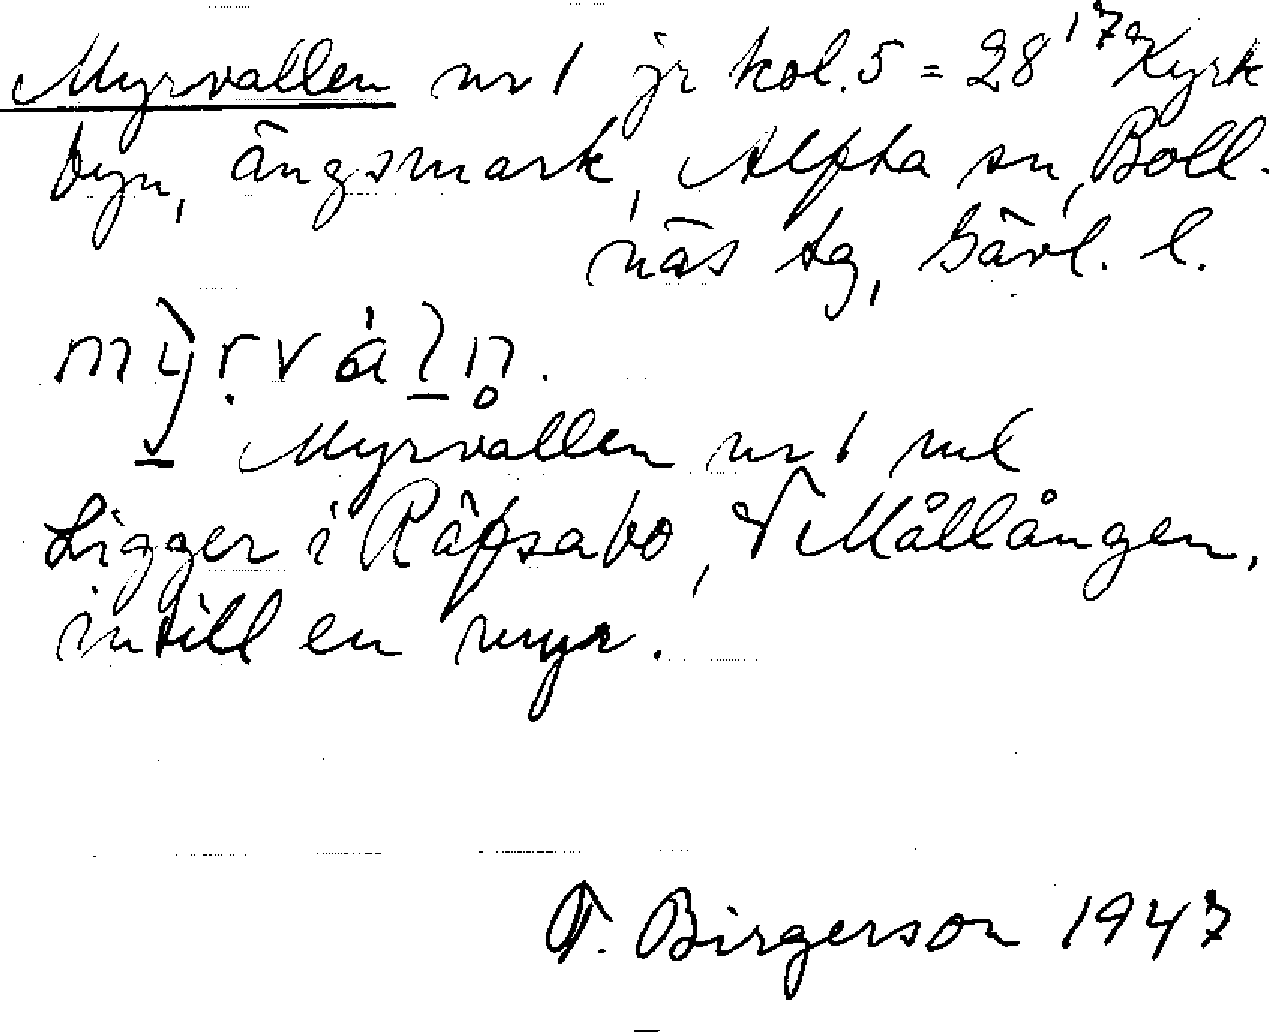 Myrvallen nr 1 jr kol. 5 = 28¹⁷ᵃ Kyrk
byn, ängsmark, Alfta sn, Boll-
näs tg, Gävl. l.
Myrvallen nr 1 rul
Ligger i Räpsabo, V Mållången,
intill en myr.
T. Birgerson 1947